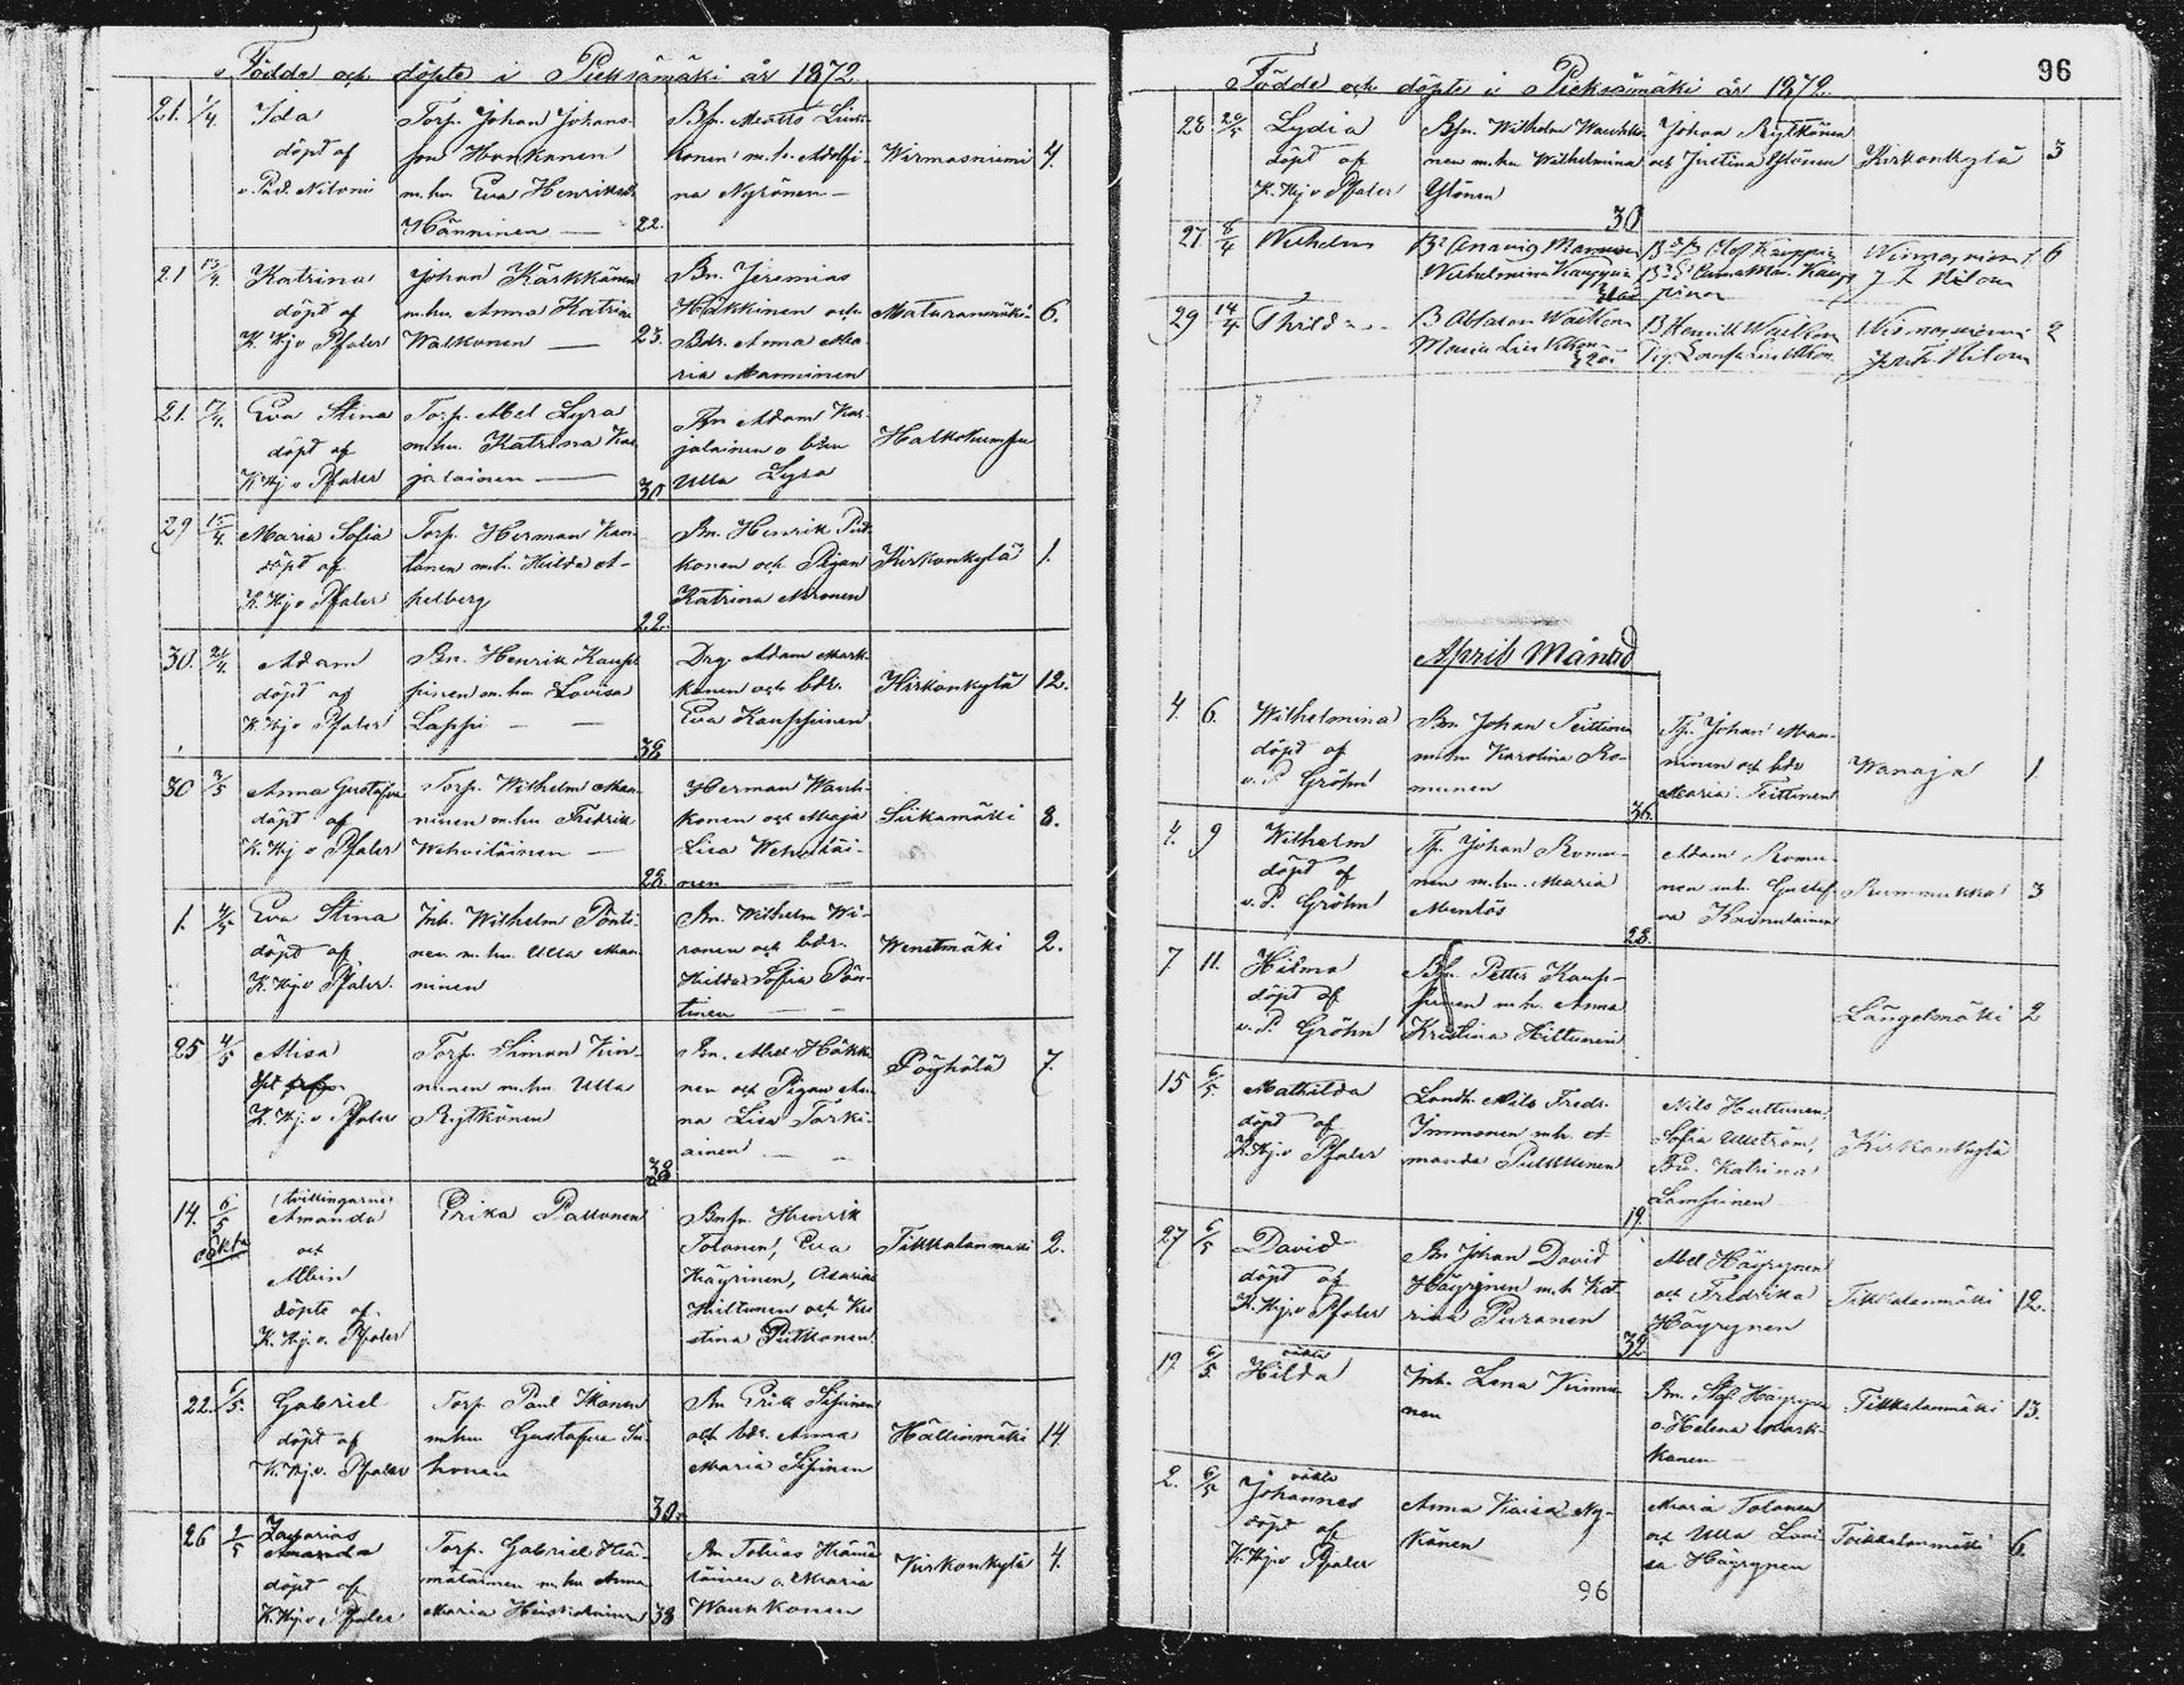 Födde och döpte i Pieksämäki år 1872.
21. 1/4. Ida döpt af v. Past. Niloni
Torp. Johan Johans-
son Honkanen
m. hu. Eva Henriksdr
Hänninen — 22.
konen m. h. Adolfi-
na Nyrönen —
Wirmasniemi 4.
21 13/4. Katrina
döpt af
K. Hj. v Pfaler
Johan Kärkkänen
m. hu. Anna Katrina
Walkonen — 23.
Bn. Jeremias
Häkkinen och
Bdr. Anna Ma-
ria Manninen
6.
21. 7/4. Eva Stina
döpt af
K Hj v Pfaler
Torp. Abel Lyra
m. hu. Katrina Kar
jalainen — 30
Bn Adam Kar-
jalainen o bdn
Ulla Lyra
Halkokumpu
29 15/4. Maria Sofia
döpt af
K. Hj v Pfaler
Torp. Herman Kan-
tanen m. h. Hilda A-
pelberg 22.
Bn. Henrik Piit-
konen och Pigan
Katrina Mironen
Kirkonkylä 1.
30. 21/4. Adam
döpt af
K. Hj v Pfaler
Bn. Henrik Kaup-
pinen m. hu Lovisa
Lappi — — 38
Drg. Adam Mark-
kanen och bdr.
Eva Kauppinen
Kirkonkylä 12.
30 3/5 Anna Gustafva
döpt af
K. Hj v Pfaler
Torp. Wilhelm Man-
ninen m. hu Fredrika
Wehviläinen — 28.
Herman Wauh-
konen och Maja
Lisa Wehviläi-
nen — —
Siikamäki 8.
1. 4/5 Eva Stina
döpt af
K. Hj. v Pfaler.
Inh. Wilhelm Pönti-
nen m. hu. Ulla Man-
ninen
Bn. Wilhelm Wi-
ranen och bdr.
Hilda Sofia Pön-
tinen — —
Wenetmäki 2.
25 4/5 Alisa
K. Hj. v Pfaler
Torp. Simon Kin-
nunen m. hu. Ulla
Rytkönen 38
Bn. Abel Häkki-
nen och Pigan An-
na Lisa Tarki-
ainen — —
Pöyhölä 7.
14. 6/5 oäkta
(tvillingarne)
Amanda
och
Albin
döpte af
K. Hj. v. Pfaler
Erika Pallonen
Bnsn. Henrik
Tolanen, Eva
Häyrinen, Asarias
Hiltunen och Kri
stina Putkonen.
Tikkalanmäki 2.
22. 6/5. Gabriel
döpt af
K. Hj. v. Pfaler
Torp. Paul Ikonen
m. hu Gustafva Si-
honen 30.
Bn Erik Sipinen
och bdr. Anna
Maria Sipinen
Hällinmäki 14
26 2/5 Zacharias
Amanda
döpt af
K. Hj. v Pfaler
Torp. Gabriel Hä-
mäläinen m. hu Anna
Maria Heiskalainen 38
Bn Tobias Hämä
läinen o. Maria
Wauhkonen
Kirkonkylä 4.
96
Födde och döpte i Pieksämäki år 1872.
28. 20/5 Lydia
döpt af
K. Hj v Pfaler
Bsn. Wilhelm Wauhko-
nen m. hu Wilhelmina
Ylönen 30
Johan Rytkönen
och Justina Ylönen
Kirkonkylä 3
27 8/4 Wilhelm
6
29 14/4
2
April Månad
4. 6. Wilhelmina
döpt af
v. P. Gröhn
Bn. Johan Teittinen
m. hu Karolina Ro-
munen 36.
Tp. Johan Man-
ninen och bdr
Maria Teittinen
Wanaja 1.
4. 9 Wilhelm
döpt af
v. P. Gröhn
Tp. Johan Romu-
nen m. hu. Maria
Mentös 28.
Adam Romu-
nen m h. Gustaf-
va Kainulainen
Rummukka 3
7 11. Hilma
döpt af
v. P. Gröhn
Bsn. Petter Kaup-
pinen m. h. Anna
Kristina Hiltunen
Längelmäki 2
15 6/5. Mathilda
döpt af
K. Hj. v Pfaler
Landh. Nils Fredr.
Immonen m. h. A-
manda Pulkkinen 19.
Nils Huttunen,
Sofia Ullström,
Katrina
Lampinen
Kirkonkylä
27 6/5 David
döpt af
K. Hj. v Pfaler
Bn Johan David
Häyrynen m. h Kat-
rina Puranen 32.
Abel Häyrynen
och Fredrika
Häyrynen
Tikkalanmäki 12.
17 6/5. oäkta
Hilda
Inh. Lena Kinnu-
nen
Bn. Häyrynen
o. Helena Mark-
kanen —
Tikkalanmäki 13.
2. 6/5 oäkta
Johannes
döpt af
K. Hj. v Pfaler
Anna Kaisa Ny-
känen
Maria Tolanen
och Ulla Lovi
sa Häyrynen
Tikkalanmäki 6.
96